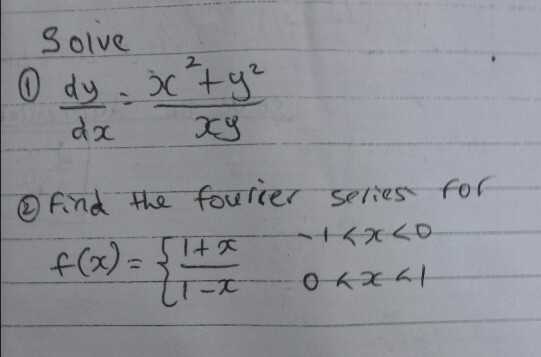 Solve
① dy/dx = x²+y²/xy
② Find the fourier series for
f(x) = { 1+x -1<x<0
1-x 0<x<1